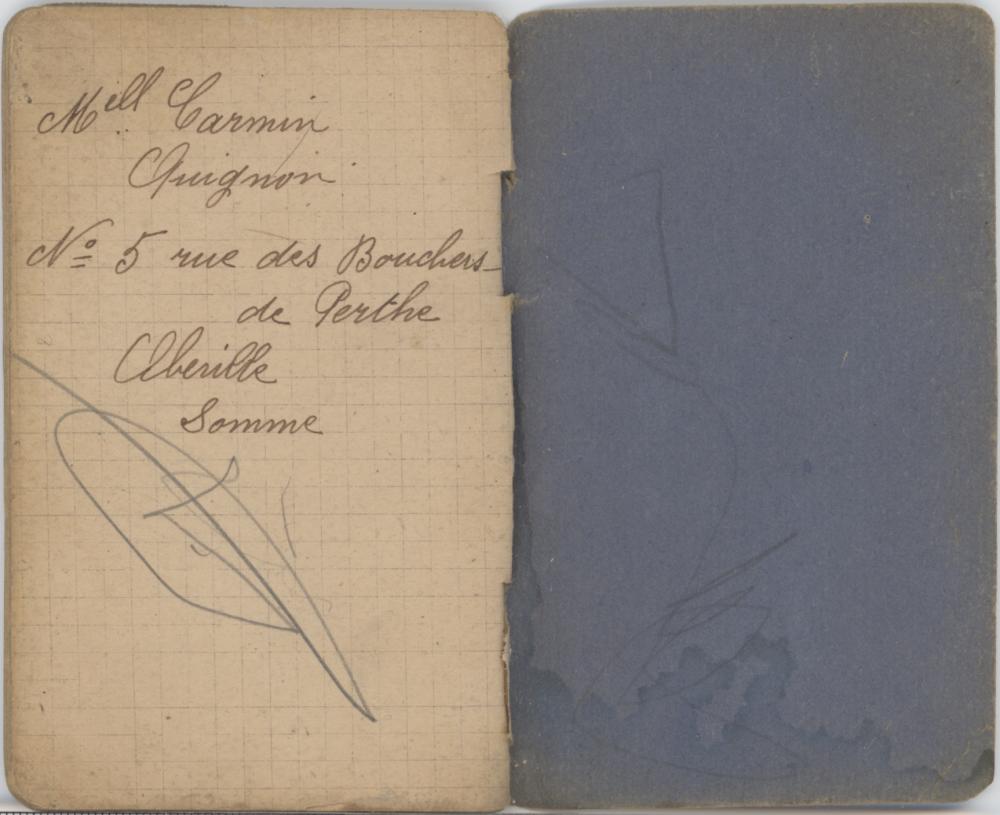 Mell Carmin
Quignon
No 5 rue des Bouchers-
de Perthe
Abeville
Somme